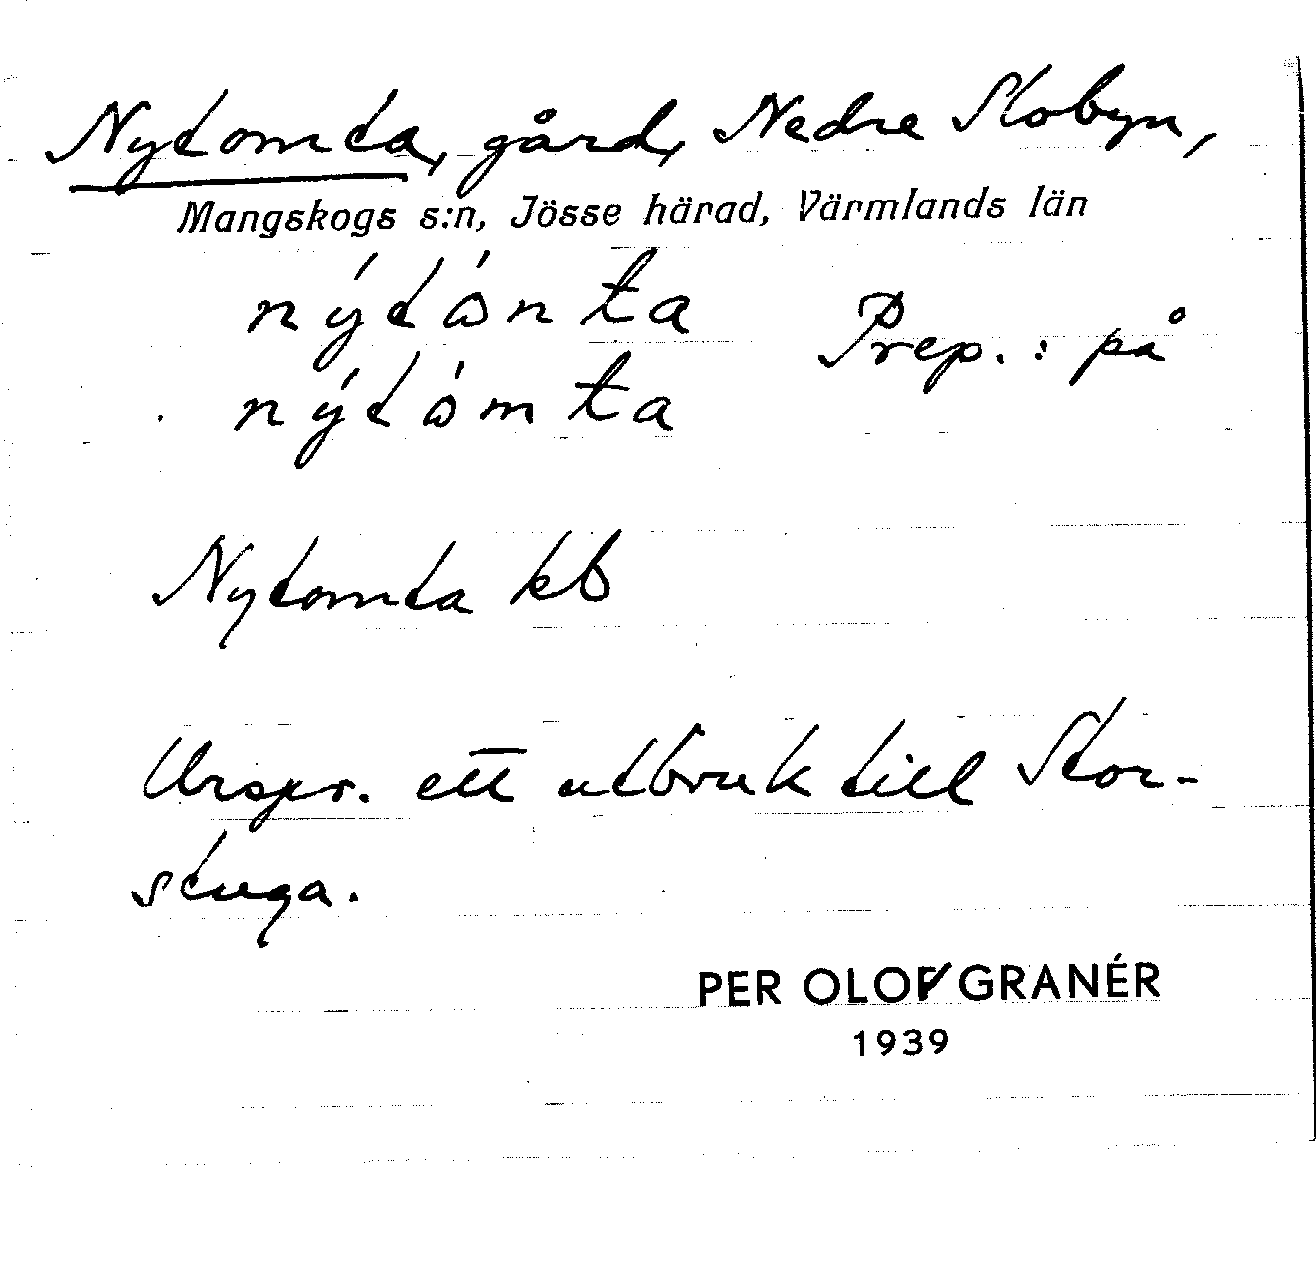 Nytomta, gård, Nedre Slobyn,
Mangskogs s:n, Jösse härad, Värmlands län
nýtónta Prep.: på
nýtómta
Nytomta kb
Urspr. ett utbruk till Stor-
stuga.
PER OLOF GRANÉR
1939